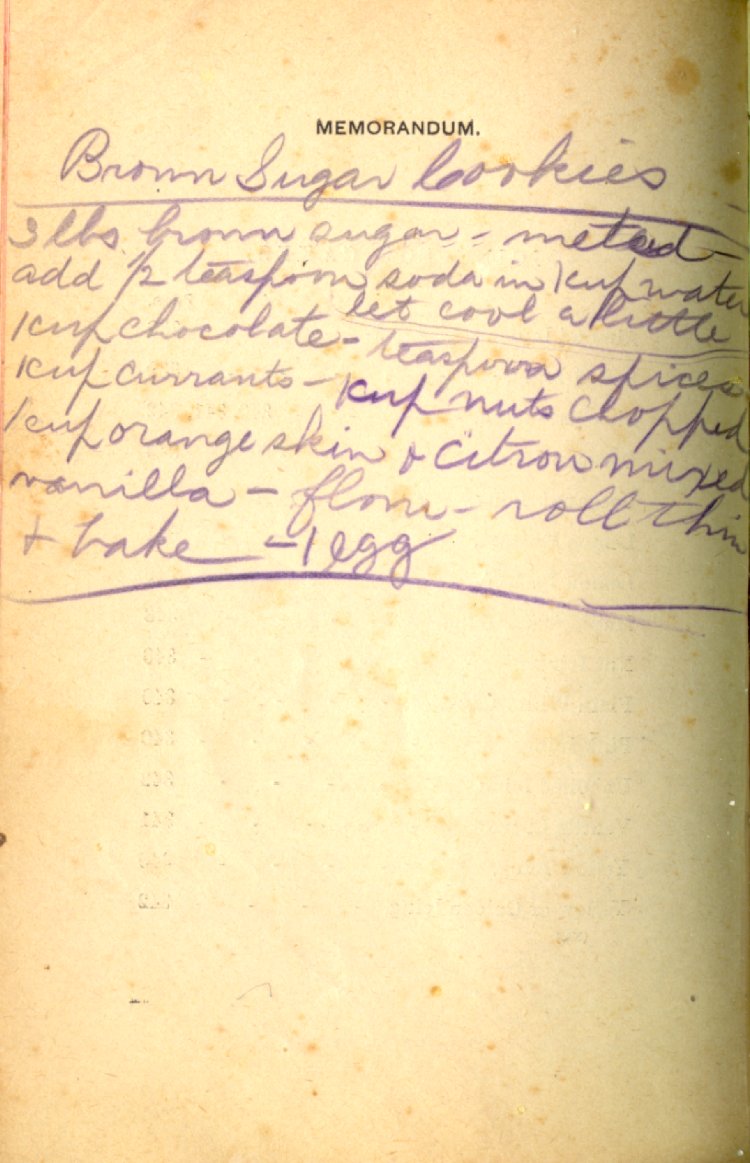 MEMORANDUM.
Brown Sugar Cookies
3 lbs brown sugar = meted -
add 1/2 teaspoon soda in 1 cup water
let cool a little
1 cup chocolate - teaspoon spices
1 cup currants - 1 cup nuts chopped
1 cup orange skin & citron mixed
vanilla - flour - roll thin
+ bake - 1 egg